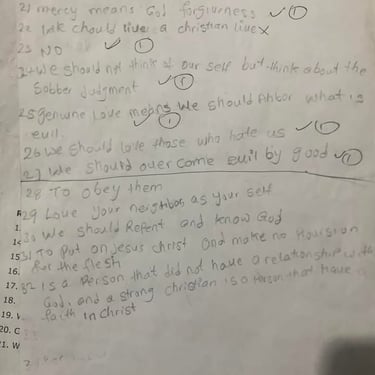 21 mercy means God forgiveness ✓ 1
22 we should live a christian live x
23 NO ✓ 1
24 We should not think of our self but think about the
Sobber Judgment ✓ 1
25 genuine Love means we should Ahbor what is
evil. ✓ 1
26 we should love those who hate us ✓ 1
27 we should over come evil by good ✓ 1
28 To obey them
29 Love your neighbor as your self
30 We should Repent and know God
31 To Put on Jesus christ and make no Provision
for the flesh
32 is a Person that did not have a relationship with
God, and a strong christian is a Person that have
faith in Christ
R
1.
14
15
16.
17.
18.
19.
20. C
21. W